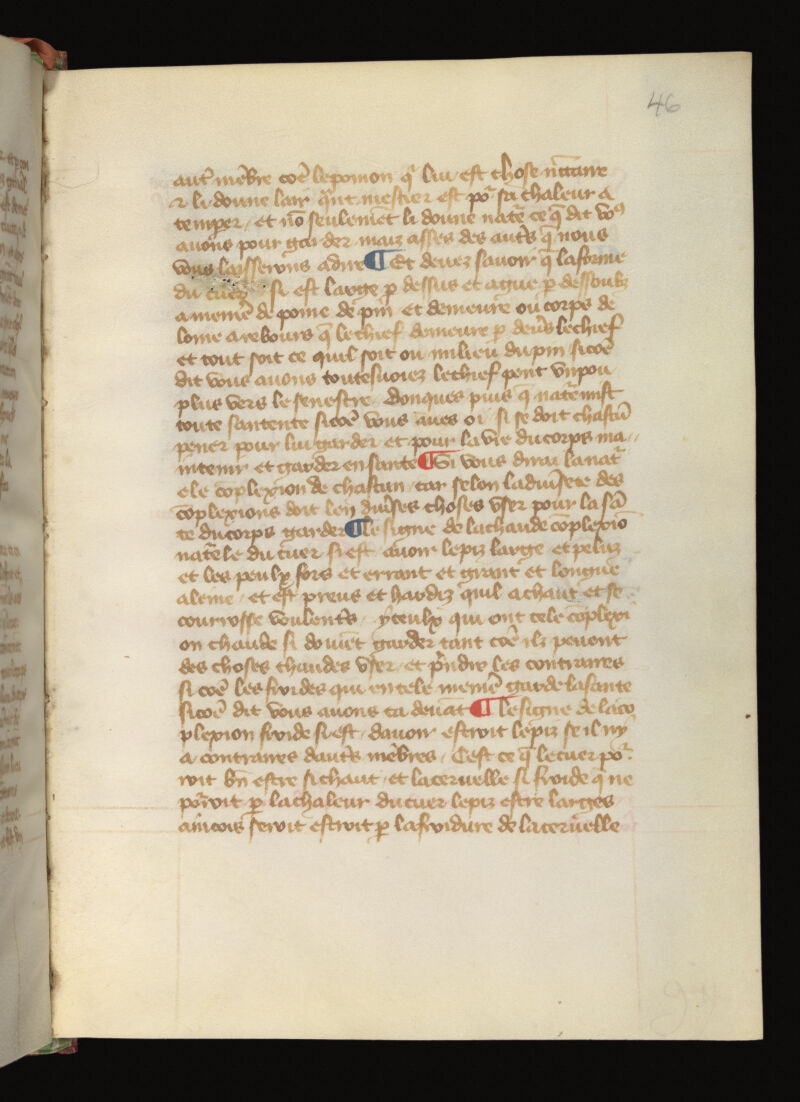 46
aut͛ mẽbre cõe lepomon q̃ lui est chose nẽcaire
⁊ li donne lair q̃nt mestier est po͛ sa chaleur a
temper / et nõ seulemẽt li donne nat͛e ce q̃ dit vo⁹
auons pour garder maiz asses des aut͛s q̃ nous
vous laisserons adire ¶ Et deuez sauoir q̃ laforme
du cuer si est large ꝑ dessus et ague ꝑ dessoubz
amemẽ de pome de pin et demeure ou corps de
lome arebours q̃ lechief demeure ꝑ deũs lechief
et tout soit ce quil soit ou milieu dupin sicõe
dit vous auons toutesuoiez lechief pent vnpou
plus vers le senestre / donques puis q̃ nat͛e mist
toute santente sicõe vous aues oi / si se doit chascũ
pener pour lui garder et pour lavie ducorps ma//
intenir et garder ensante ¶ Si vous dirai lanat͛
ele cõplexion de chascun / car selon laduiſete des
cõplexions doit len duiſes choses vser pour lasã
te ducorps garder ¶ le signe de lachaude cõplexiõ
nat͛ele du cuer si est / auoir lepiz large et peluz
et les peulx fors et errant et grant et longue
aleine / et est preus et hardiz quil achaut et se
courrosse voulent͛s / yceulx qui ont cele cõplexi
on chaude si doiuẽt garder tant cõe ilz peuont
des choses chaudes vser / et p̃ndre les contraires
si cõe les froides qui entele memẽ garde lasante
sicõe dit vous auons ca deuãt ¶ le signe de laco
plexion froide si est / dauoir estroit lepiz se il ny
a contraires daut͛s mẽbres / Cest ce q̃ lecuer po͛
roit bñ estre sichaut / et laceruelle si froide q̃ ne
po͛roit ꝑ lachaleur ducuer lepiz estre larges
aincois seroit estroit ꝑ lafroidure de laceruelle